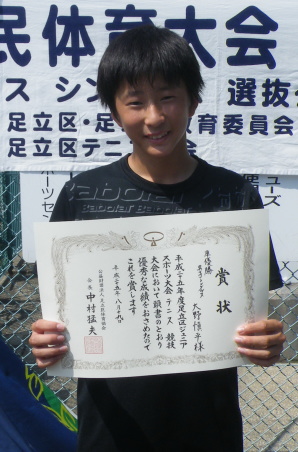 民体育大会
ス シン
選抜
足立区・足
教育委員会
足立区テニ
会
ーツセ
ューズ
Babolat
Babolat
賞状
準優勝
平成二十五年度足立区ジュニア
スポーツ大会 テニス 競技
大会において頭書のとおり
優秀な成績をおさめたので
これを賞します
平成二十五年八月
公益財団法人足立区体育協会
会長 中村猛夫